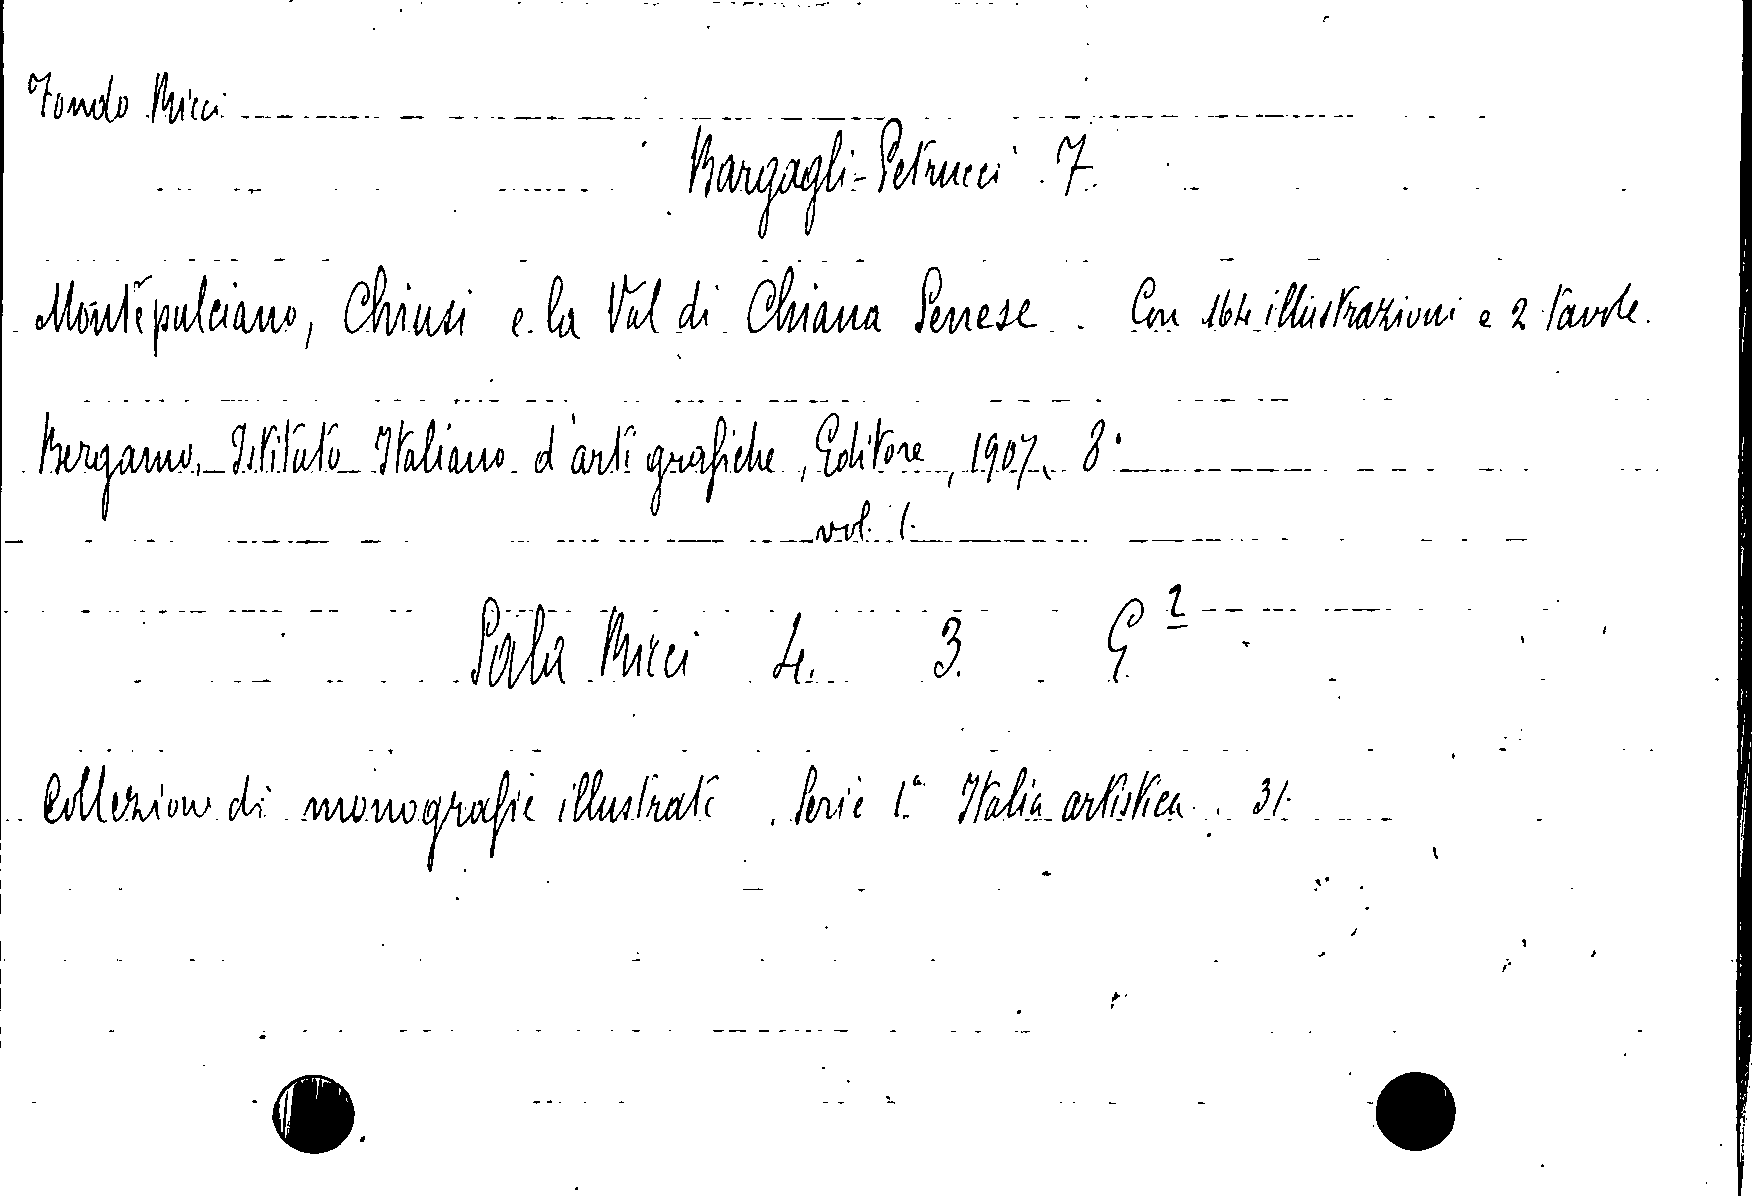 Fondo Ricci
Bargagli-Petrucci F.
Montepulciano, Chiusi e la Val di Chiana Senese. Con 164 illustrazioni e 2 tavole.
Bergamo, Istituto Italiano d'arti grafiche, Editore, 1907, 8°
vol. 1.
Sala Ricci 4. 3. G²
Collezione di monografie illustrate. Serie 1ª Italia artistica. 31.